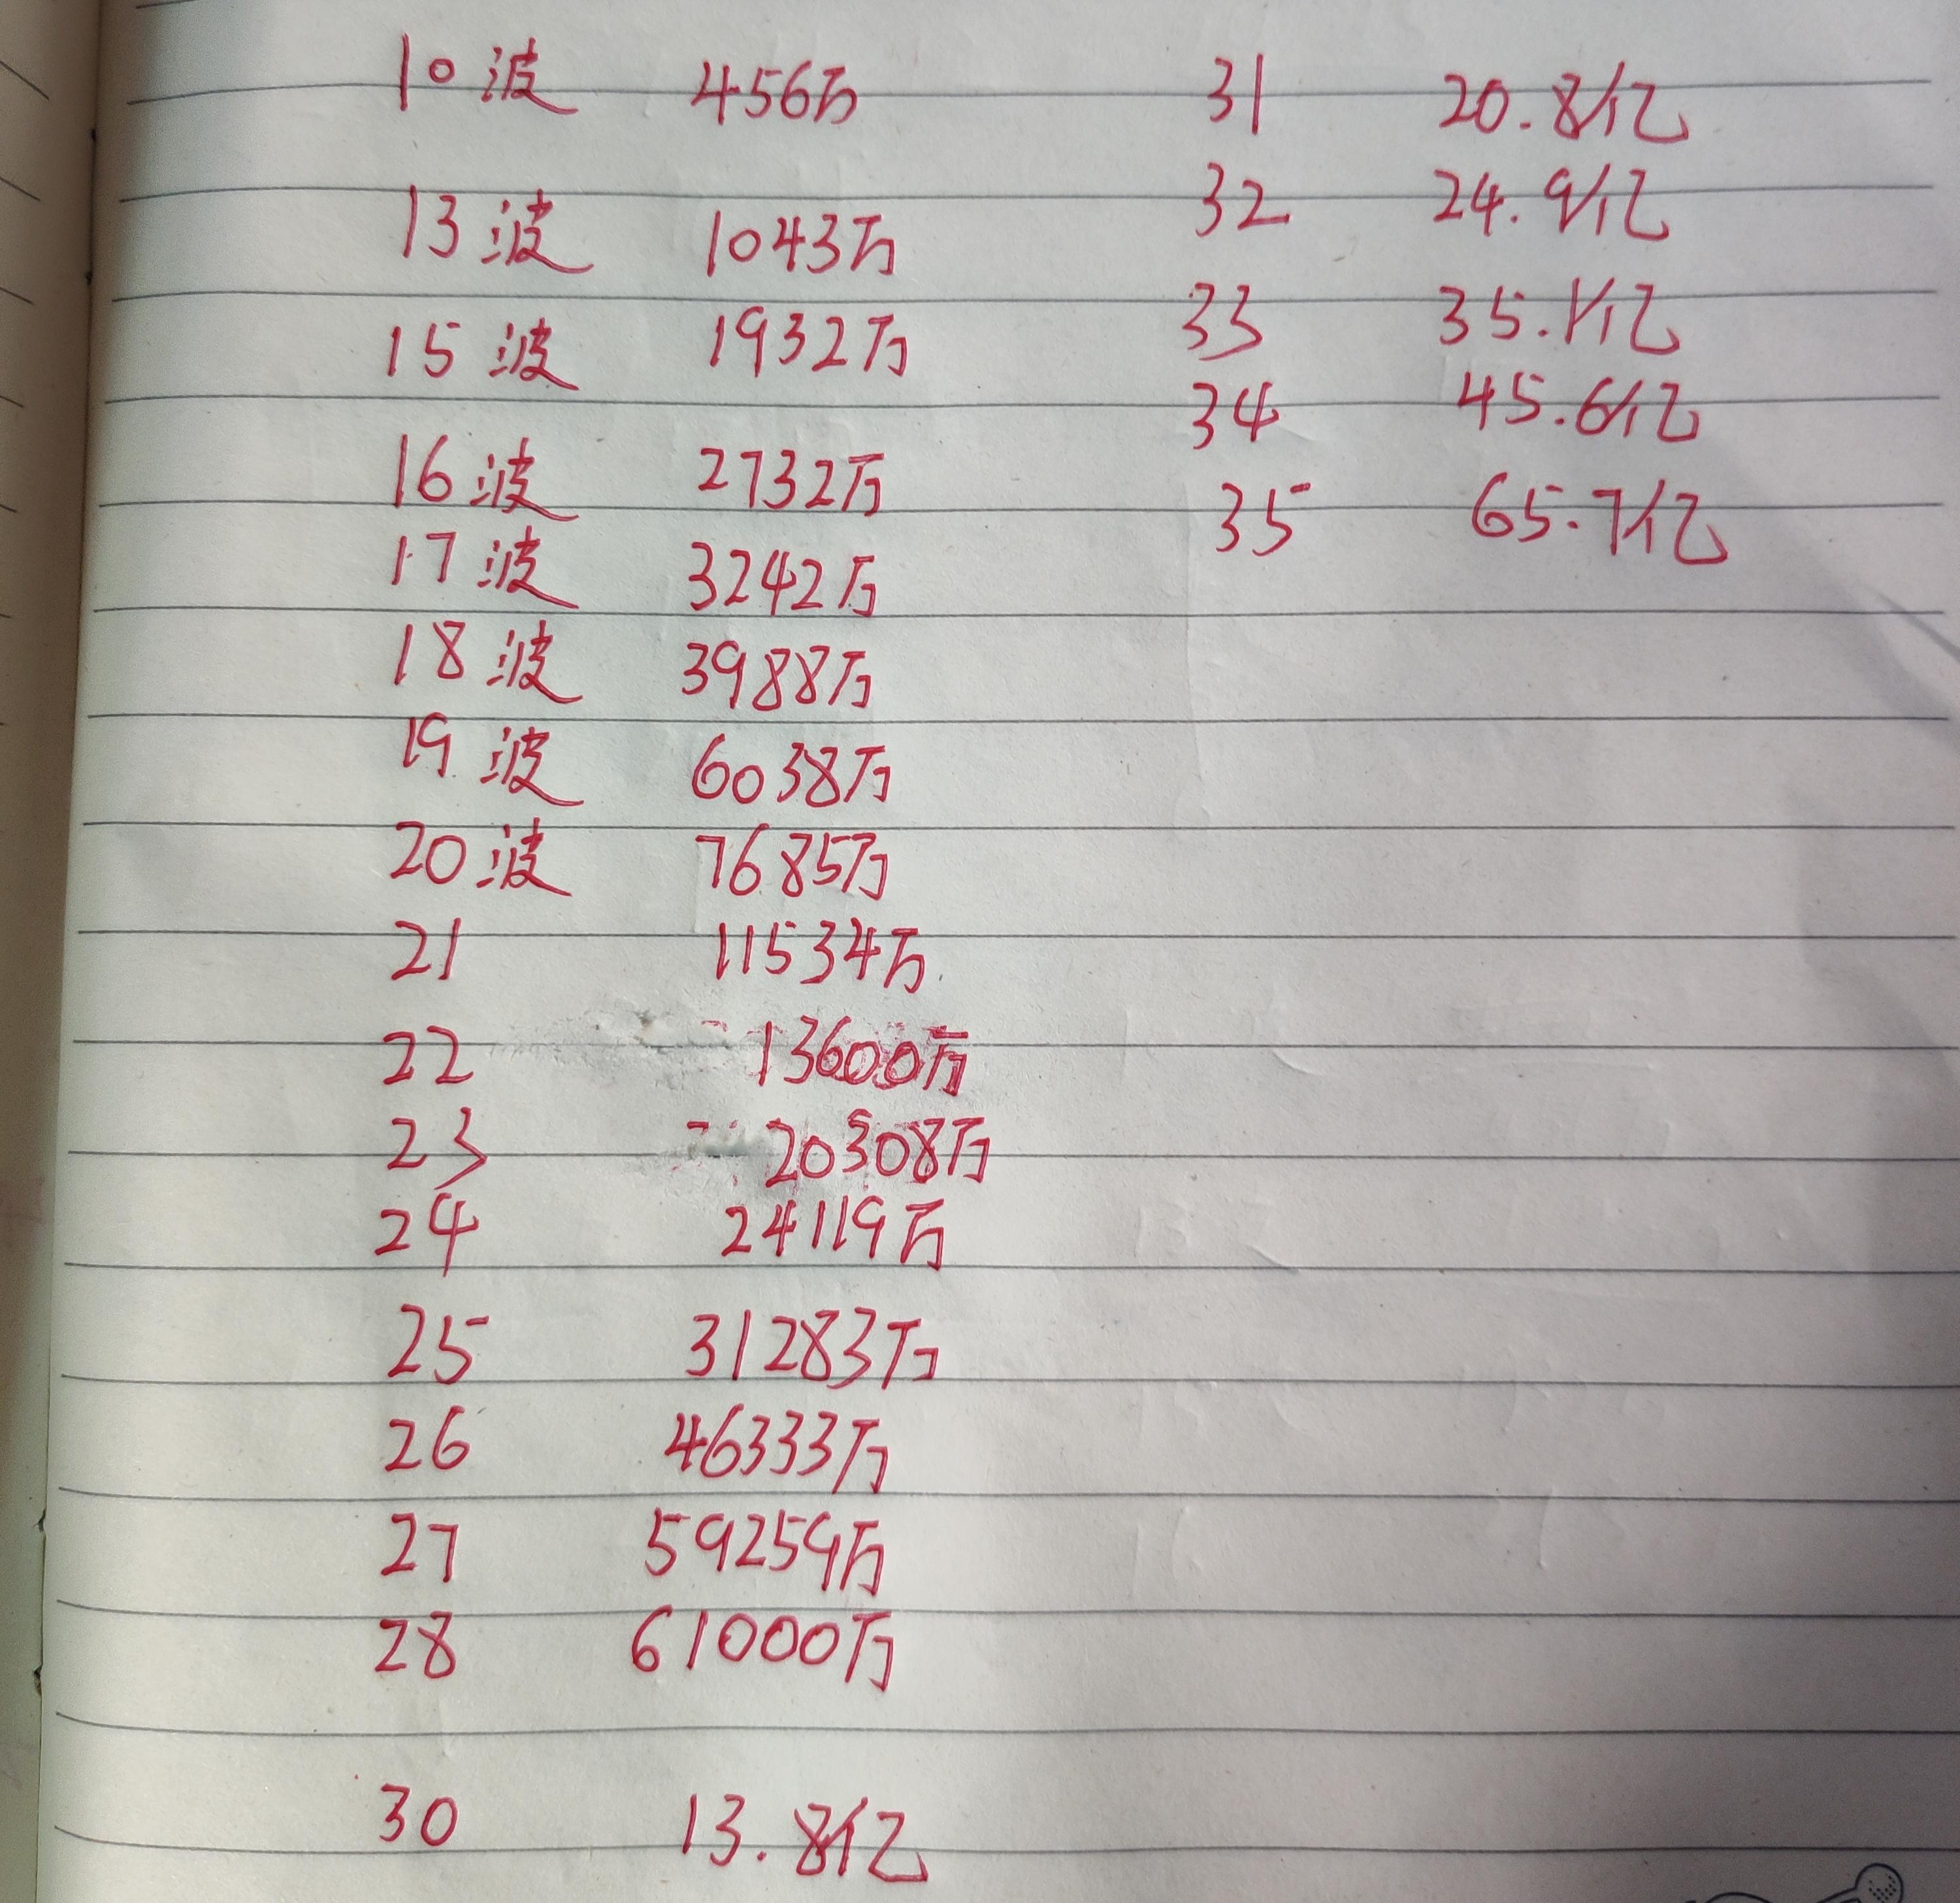 10波 456万
13波 1043万
15波 1932万
16波 2732万
17波 3242万
18波 3988万
19波 6038万
20波 7685万
21 11534万
22 13600万
23 20308万
24 24119万
25 31283万
26 46333万
27 59259万
28 61000万
30 13.8亿
31 20.8亿
32 24.9亿
33 35.1亿
34 45.6亿
35 65.7亿